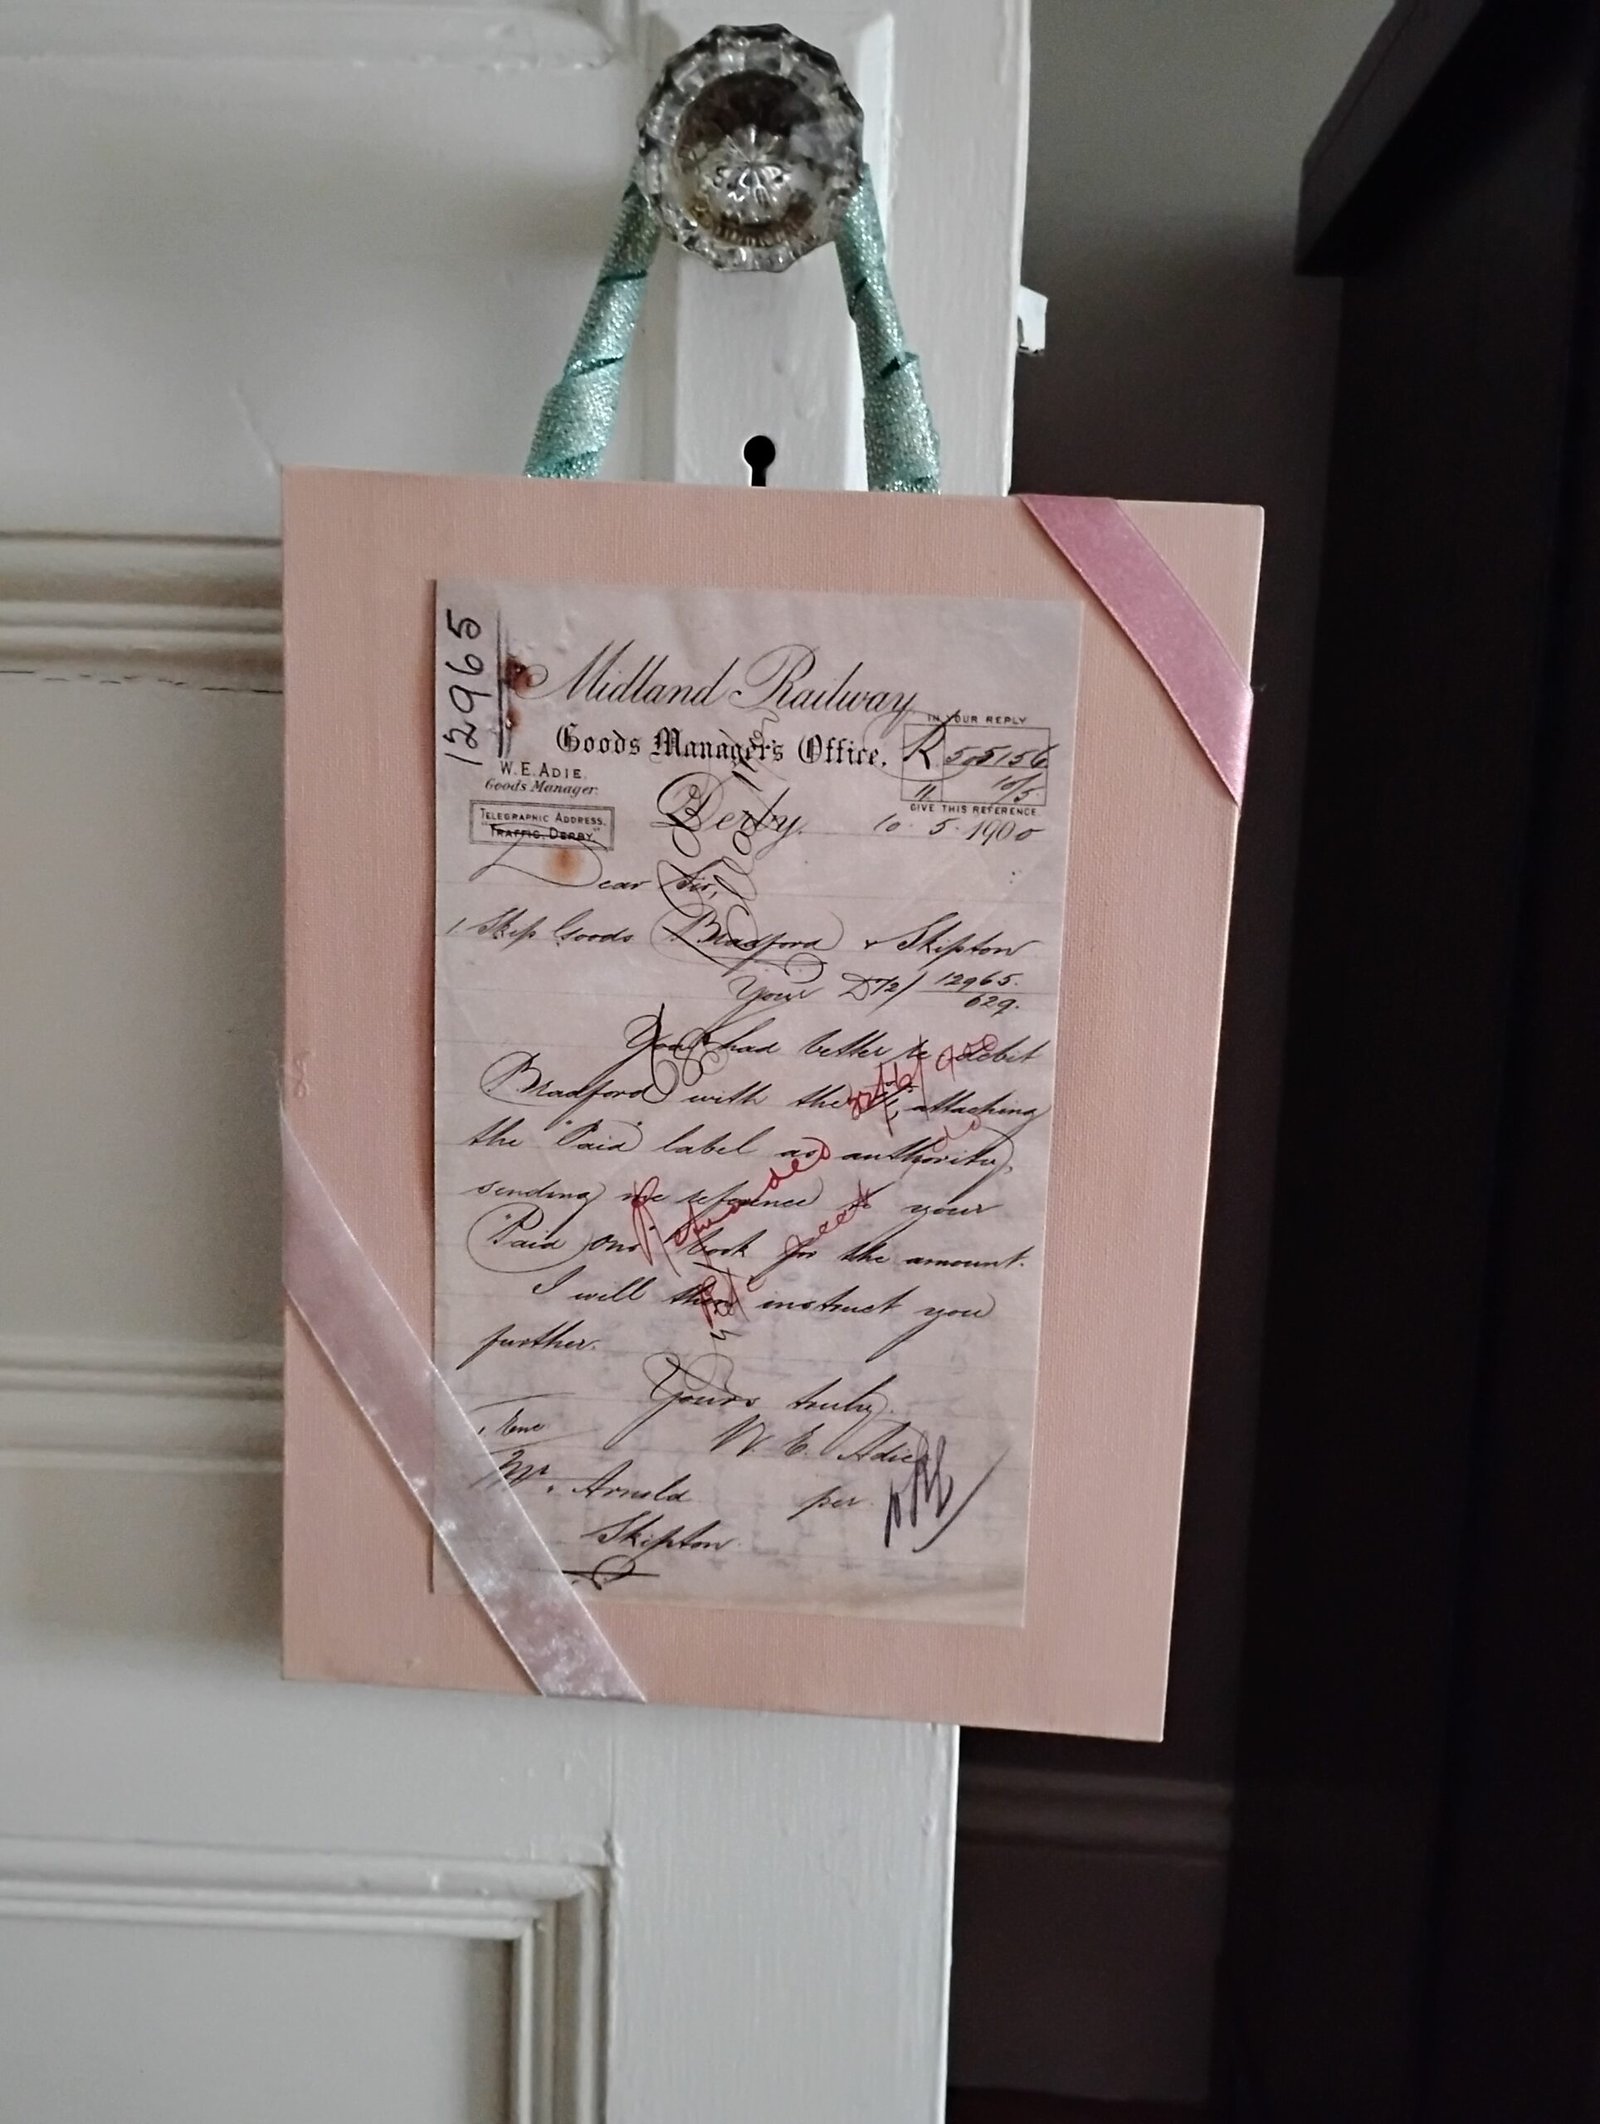 12965
Midland Railway
IN YOUR REPLY
Goods Manager's Office,
R 505156
11 10/5
W. E. ADIE,
Goods Manager.
GIVE THIS REFERENCE
TELEGRAPHIC ADDRESS,
"TRAFFIC, DERBY."
Derby,
10. 5. 1900
Dear Sir,
1 Skip Goods Bradford & Skipton
Your D72/ 12965
629.
You had better re debit
Bradford with the attaching
the "Paid" label as authority,
sending me reference to your
"Paid ons" book for the amount.
I will then instruct you
further.
Yours truly,
W. E. Adie
Mr. Arnold per
Skipton